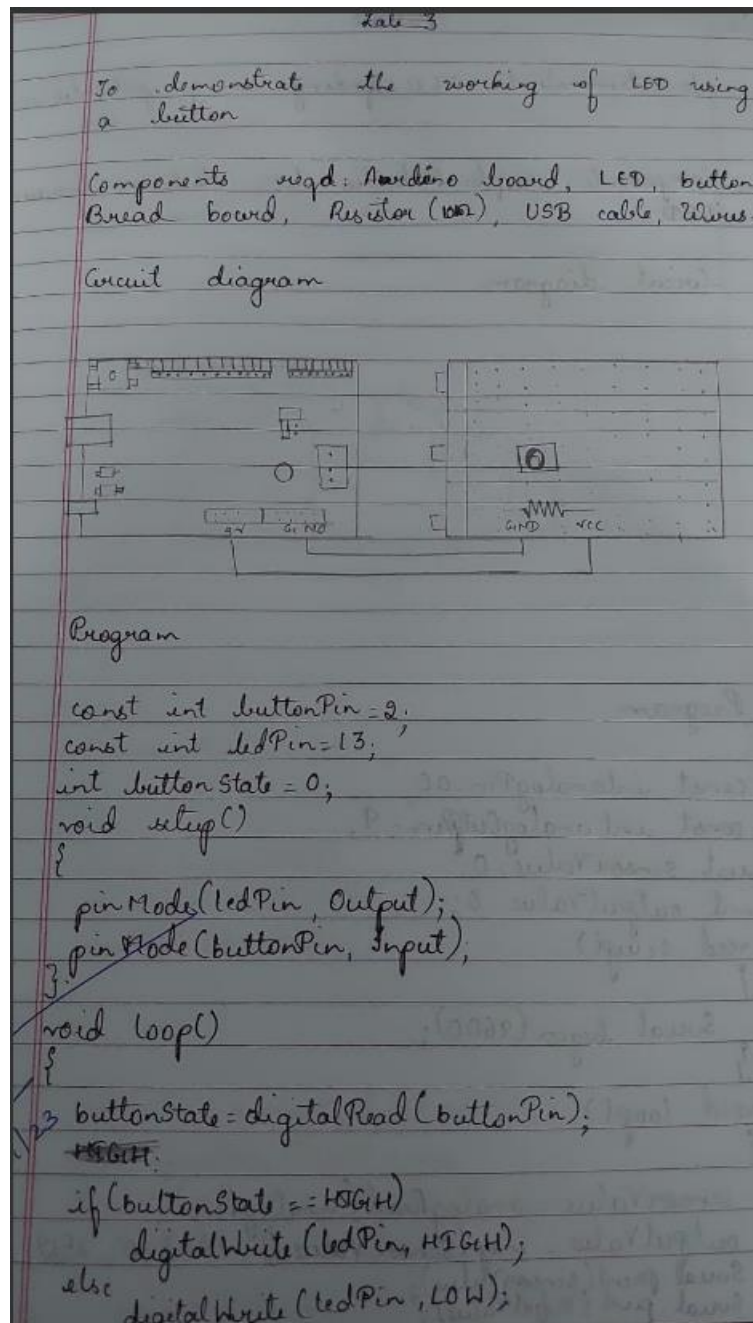 Lab 3
To demonstrate the working of LED using
a button
Components reqd: Aurdino board, LED, button
Bread board, Resistor, USB cable, Wires.
Circuit diagram
GND
GND VCC
Program
const int buttonPin=2;
const int ledPin=13;
int buttonState = 0;
void setup()
{
pinMode(ledPin, Output);
pinMode(buttonPin, Input);
}
void loop()
{
buttonState = digitalRead(buttonPin);
HIGH.
if(buttonState == HIGH)
digitalWrite(ledPin, HIGH);
else
digitalWrite(ledPin, LOW);